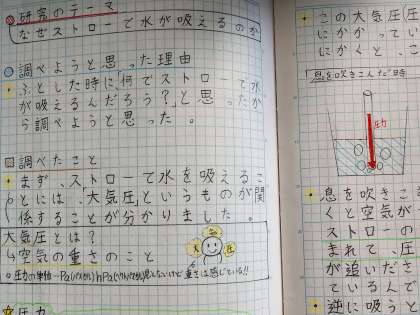 研究のテーマ
なぜストローで水が吸えるのか
調べようと思った理由
ふとした時に、何でストローで水
が吸えるんだろう?と思ったか
ら調べようと思った。
調べたこと
まず、ストローで水を吸えるこ
とには、「大気圧」というものが関
係することが分かりました。
大気圧とは?
↳空気の重さのこと
圧力
この大気圧(圧
にかかってい
にかくと、こ
「息を吹きこんだ時
圧力
息を吹きこ
くと空気が
ストローの
まれて、圧
が追いださ
ているんで
逆に吸うと